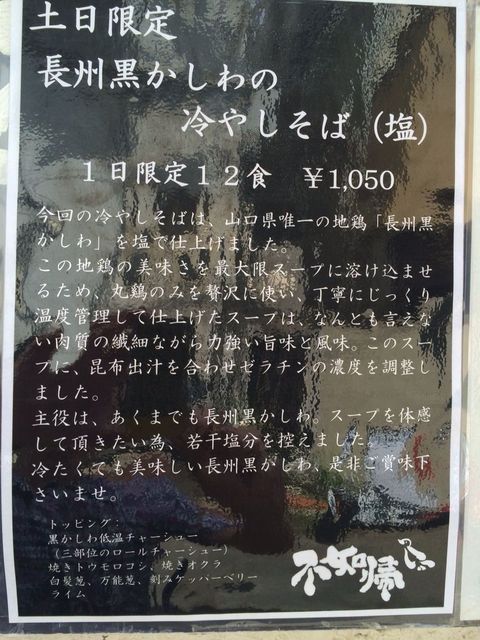 土日限定
長州黒かしわの
冷やしそば(塩)
1日限定12食 ￥1,050
今回の冷やしそばは、山口県唯一の地鶏「長州黒
かしわ」を塩で仕上げました。
この地鶏の美味さを最大限スープに溶け込ませ
るため、丸鶏のみを贅沢に使い、丁寧にじっくり
温度管理して仕上げたスープは、なんとも言えな
い肉質の繊細ながら力強い旨味と風味。このスー
プに、昆布出汁を合わせゼラチンの濃度を調整し
ました。
主役は、あくまでも長州黒かしわ。スープを体感
して頂きたい為、若干塩分を控えました。
冷たくても美味しい長州黒かしわ、是非ご賞味下
さいませ。
トッピング:
黒かしわ低温チャーシュー
(三部位のロールチャーシュー)
焼きトウモロコシ、焼きオクラ
白髪葱、万能葱、刻みケッパーベリー
ライム
不如帰